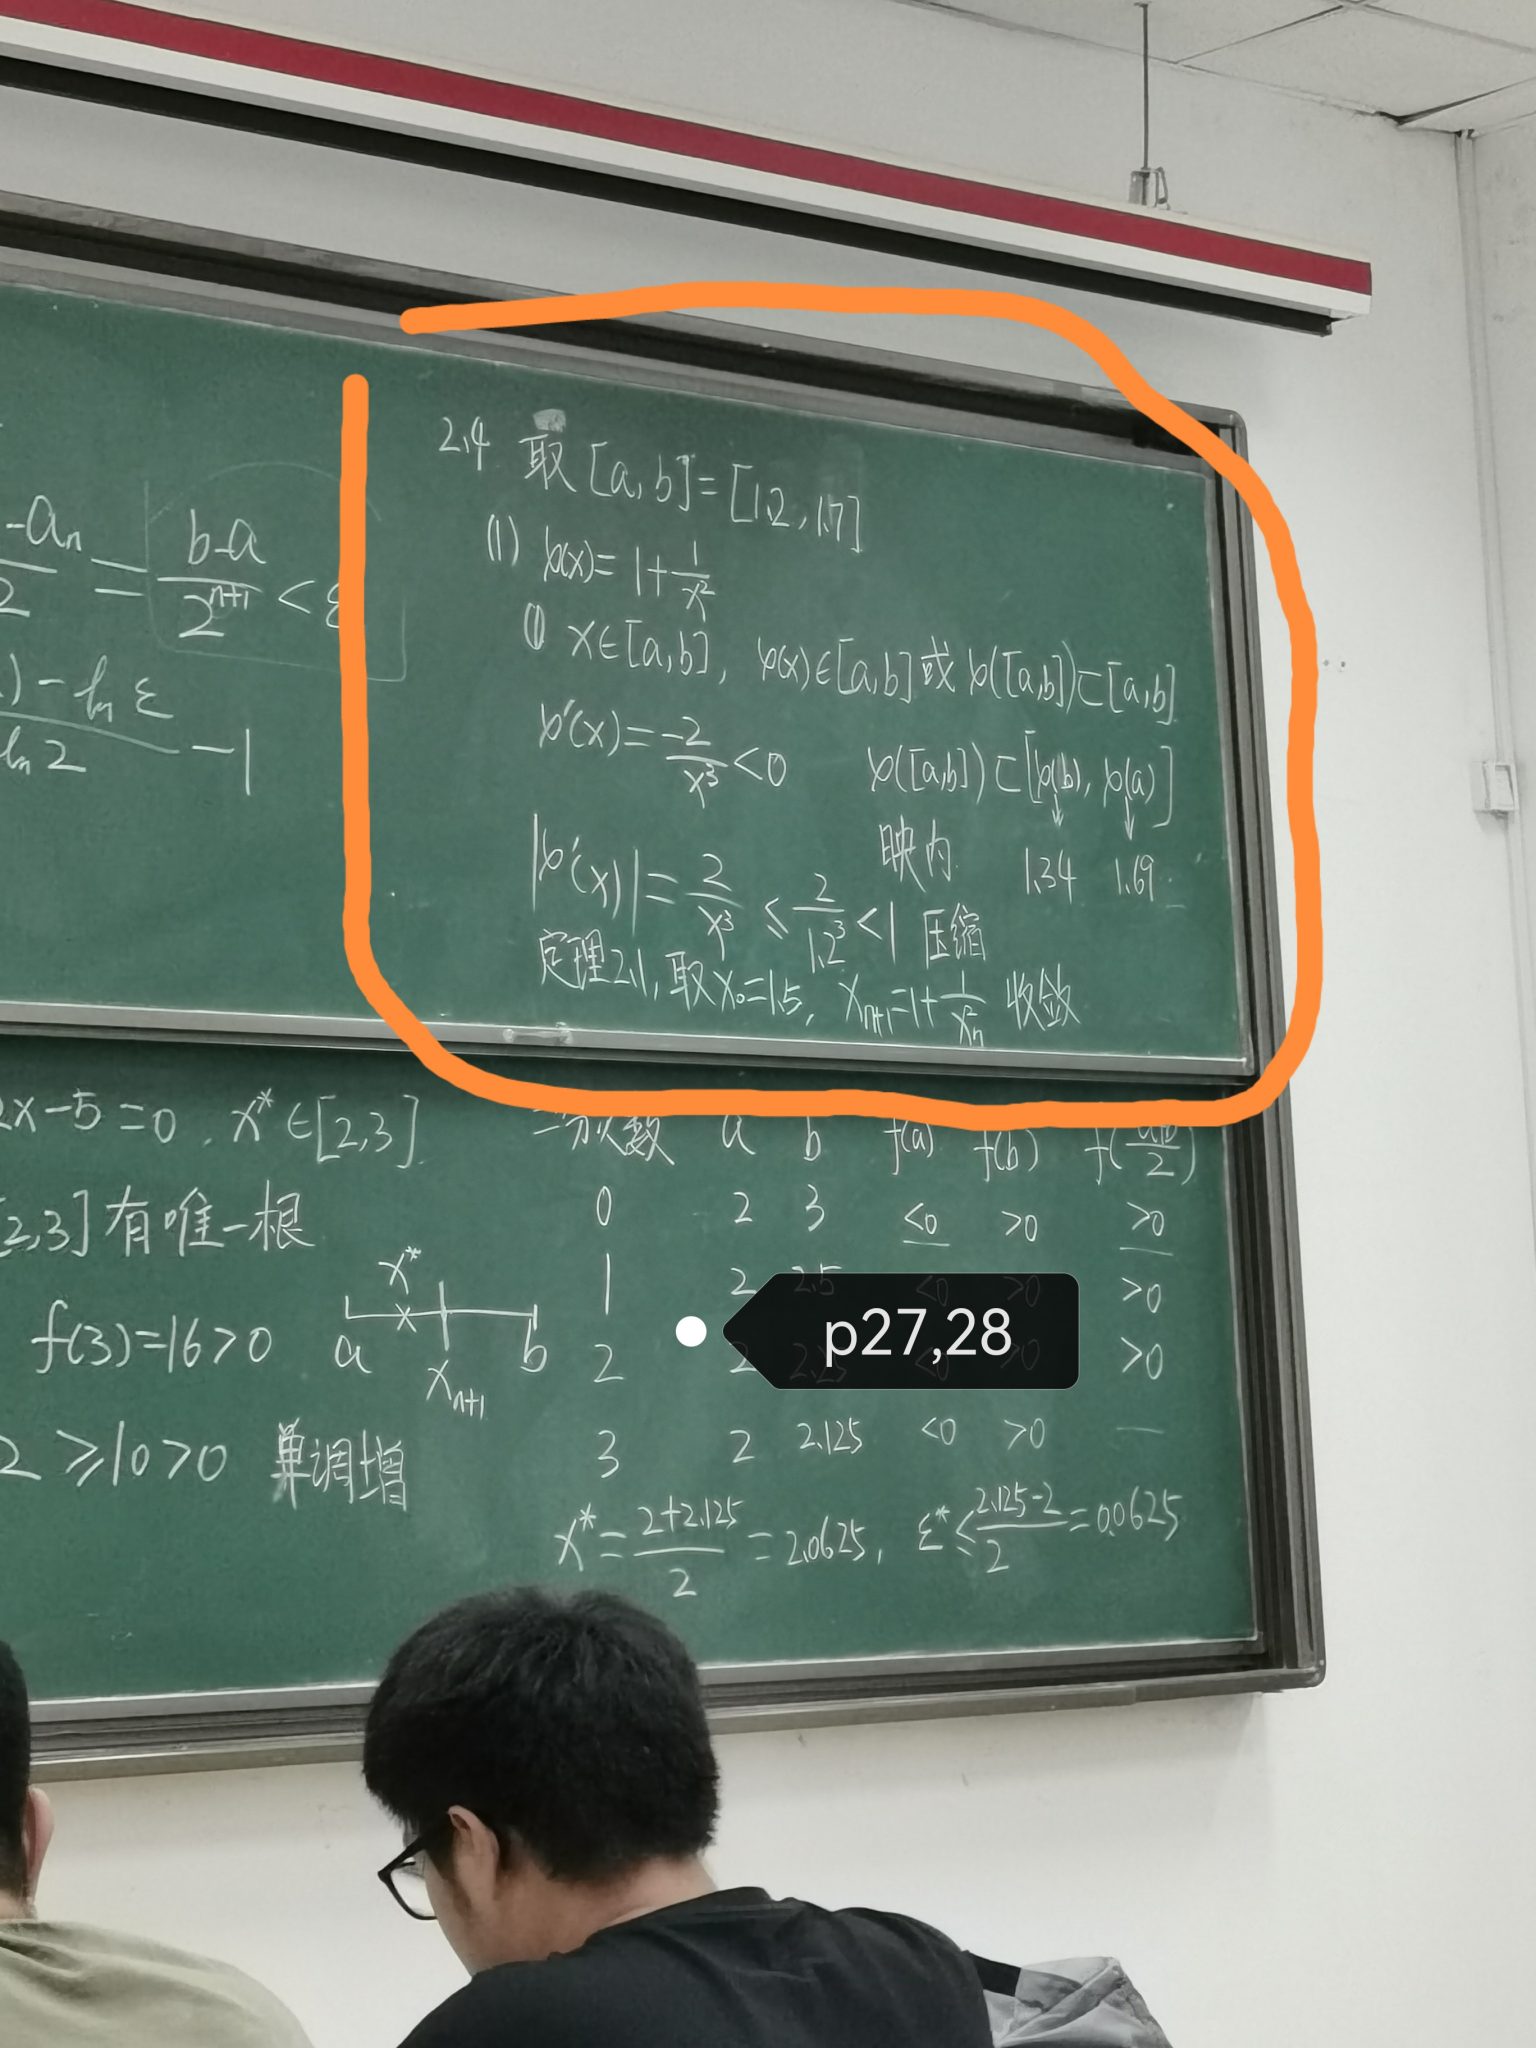 -aₙ/2 = b-a/2ⁿ⁺¹ < ε
) - ln ε/ln 2 - 1
2.4 取 [a, b] = [1.2, 1.7]
(1) φ(x) = 1 + 1/x²
① x∈[a, b], φ(x)∈[a, b] 或 φ([a, b])⊂[a, b]
φ'(x) = -2/x³ < 0 φ([a,b])⊂[φ(b), φ(a)]
映内 1.34 1.69
|φ'(x)| = 2/x³ ≤ 2/1.2³ < 1 压缩
定理2.1, 取x₀=1.5, xₙ₊₁=1+1/x²ₙ 收敛
2x-5=0, x*∈[2,3]
[2,3]有唯一根
f(3)=16>0
x*
a b
xₙ₊₁
2≥10>0 单调增
二分次数 a b f(a) f(b) f(a+b/2)
0 2 3 <0 >0 >0
1 2 2.5 <0 >0 >0
2 2 2.25 <0 >0 >0
3 2 2.125 <0 >0 —
x* = 2+2.125/2 = 2.0625, ε* ≤ 2.125-2/2 = 0.0625
p27,28